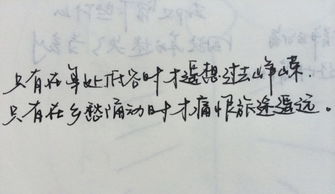 只有在身处低谷时才遥想过去峥嵘.
只有在乡愁涌动时才痛恨旅途遥远。